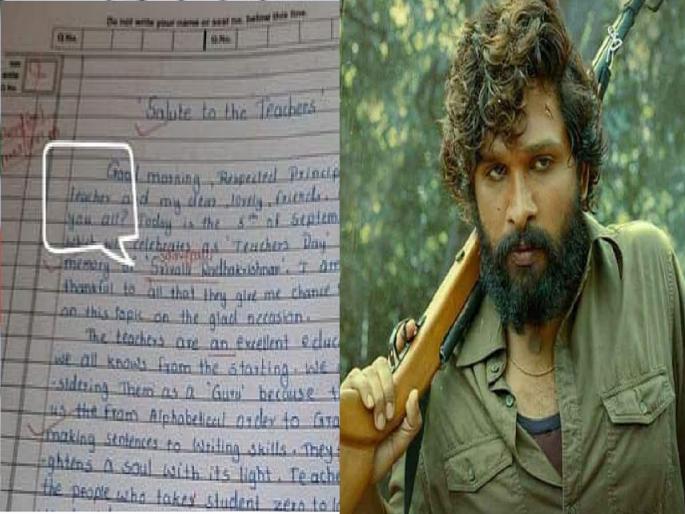 Do not write your name or seat no. below this line.
Q.No. Q.No.
'Salute to the Teachers'
Good morning, Respected Princip
teacher and my dear lovely friends.
you all? Today is the 5th of Septem
celebrates as 'Teachers Day'
memory 'Srivalli Radhakrishnan'. I am
thankful to all that they give me chance
on this topic on the glad occasion.
The teachers are an excellent educ
we all knows from the starting. we
-sidering Them as a 'Guru' because t
us the from Alphabetical order to Gra
making sentences to writing skills. They
-ghtens a soul with its light. Teache
the people who takes student zero to